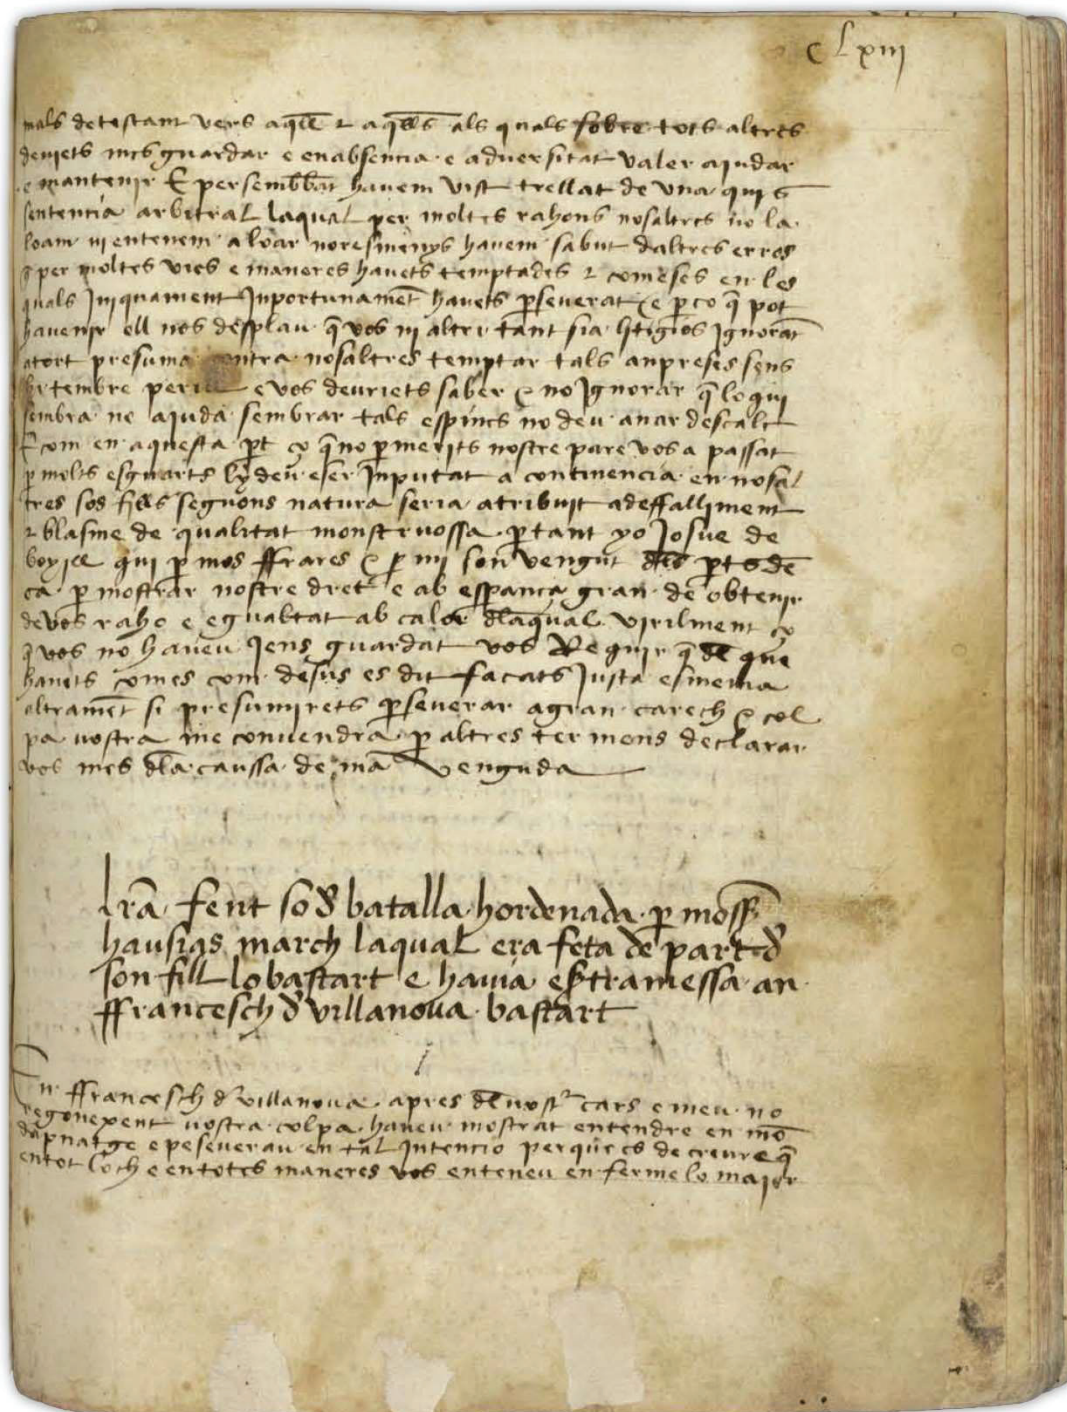 cLxiii
mals detestant vers aq̄ll e aq̄lls als quals sobre tots altres
deuiets mes guardar e en absencia e aduersitat valer aiudar
e mantenir E per semblāt hauem vist trellat de vna quis
sentencia arbitral laqual per moltes rahons nosaltres no la
loam ni entenem a loar noresmenys hauem sabut daltres erros
q̄ per moltes vies e maneres hauets temptades e comeses en les
quals Iniquament Inportunamēt hauets p̄seuerat e p̄ço q̄ pot
hauenir ell nos desplau q̄ vos ni altre tant sia litigios Ignorāt
atort presuma contra nosaltres temptar tals anpreses sens
tembre perill e vos deuriets saber e no Ignorar q̄ lo qui
sembra ne aiuda sembrar tals espines no deu anar descalç
E com en aquesta p̄t ço q̄ no p̄ merits nostre pare vos a passat
p̄ molts esguarts ly deu eser Inputat a continencia en nosal
tres sos fills segons natura seria atribuit adeffalliment
e blasme de qualitat monstruossa p̄tant yo Josue de
boyill qui p̄ mos ffrares e p̄ mi son vengut p̄ts dē
ça p̄ mostrar nostre dret e ab esp̄ança gran de obtenir
de vos raho e egualtat ab calor dlaqual virilment ço
q̄ vos no haueu Iens guardat vos Requir q̄ de que
hauets comes com desus es dit façats Justa esmena
altramēt si presumirets p̄seuerar a gran carech e col
pa vostra me conuendra p̄ altres termens declarar
vos mes dla caussa de mā venguda
lrā fent so d̄ batalla hordenada p̄ moss̄
hausias march laqual era feta de part d̄
son fill lo bastart e hauia estramessa an
ffrancesch d̄ villanoua bastart
En ffrancesch d̄ villanoua apres dl vostr̄ cars e meu no
regonexent vostra colpa haueu mostrat entendre en mō
dāpnatge e peseuerau en tal Intencio perque es de creure q̄
entot loch e en totes maneres vos enteneu en ferme lo maior